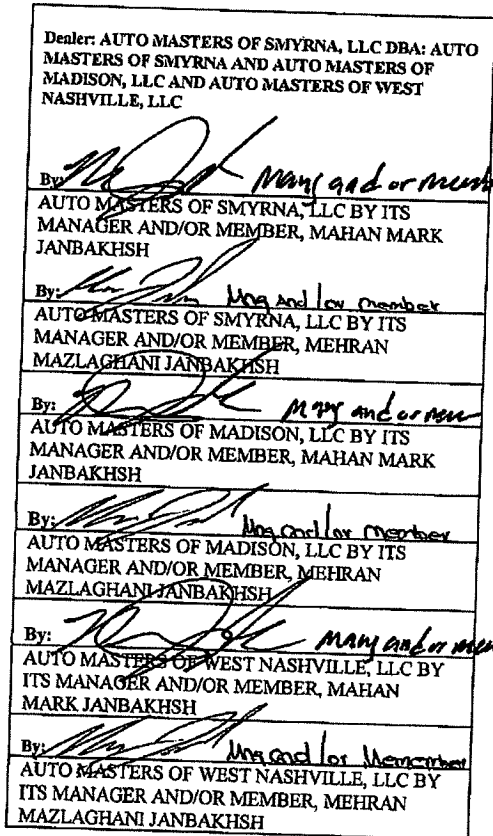 Dealer: AUTO MASTERS OF SMYRNA, LLC DBA: AUTO
MASTERS OF SMYRNA AND AUTO MASTERS OF
MADISON, LLC AND AUTO MASTERS OF WEST
NASHVILLE, LLC
By: Mang and or memb
AUTO MASTERS OF SMYRNA, LLC BY ITS
MANAGER AND/OR MEMBER, MAHAN MARK
JANBAKHSH
By: Mng And/or member
AUTO MASTERS OF SMYRNA, LLC BY ITS
MANAGER AND/OR MEMBER, MEHRAN
MAZLAGHANI JANBAKHSH
By: Mang and or mem
AUTO MASTERS OF MADISON, LLC BY ITS
MANAGER AND/OR MEMBER, MAHAN MARK
JANBAKHSH
By: Mng and/or member
AUTO MASTERS OF MADISON, LLC BY ITS
MANAGER AND/OR MEMBER, MEHRAN
MAZLAGHANI JANBAKHSH
By: Mang and or mem
AUTO MASTERS OF WEST NASHVILLE, LLC BY
ITS MANAGER AND/OR MEMBER, MAHAN
MARK JANBAKHSH
By: Mng and/or Memember
AUTO MASTERS OF WEST NASHVILLE, LLC BY
ITS MANAGER AND/OR MEMBER, MEHRAN
MAZLAGHANI JANBAKHSH